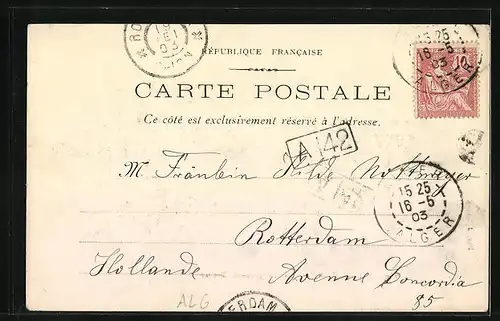 RÉPUBLIQUE FRANÇAISE
CARTE POSTALE
Ce côté est exclusivement réservé à l'adresse.
A 142
M. Fräulein Hilde
15 25
16 -5
03
ALGER
15 25
16 -5
03
ALGER
10
Rotterdam
Hollande Avenue Concordia
85
ALG
ERDAM